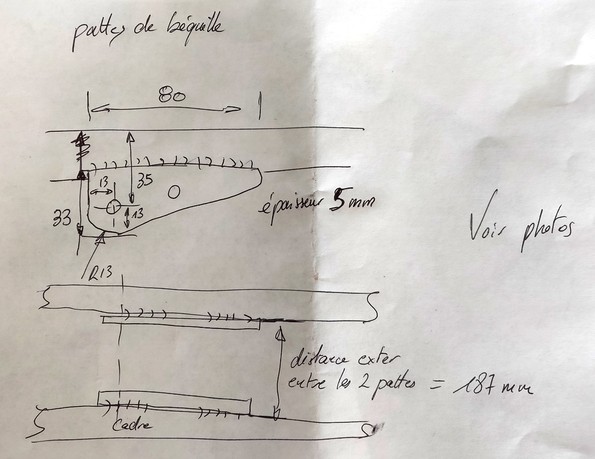 pattes de béquille
80
13
35
33
13
épaisseur 5mm
Voir photos
R13
distance exter
entre les 2 pattes = 187 mm
Cadre